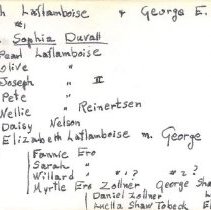 h Laflamboise & George E.
#1
Sophia Duvall
Pearl Laflamboise
Olive "
Joseph " II
Pete "
Nellie " Reinertsen
Daisy Nelson
Elizabeth Laflamboise m. George
Fannie Ero
Sarah "
Willard " #1? #2?
Myrtle Ero Zollner George Sha
Daniel Zollner L
Luella Shaw Tobeck E